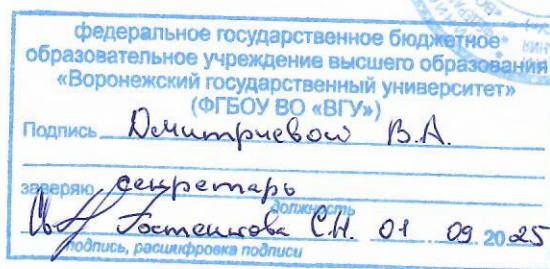 федеральное государственное бюджетное
образовательное учреждение высшего образования
«Воронежский государственный университет»
(ФГБОУ ВО «ВГУ»)
Подпись Дмитриевой В.А.
заверяю секретарь
должность
С.Н. 01 09 2025
подпись, расшифровка подписи